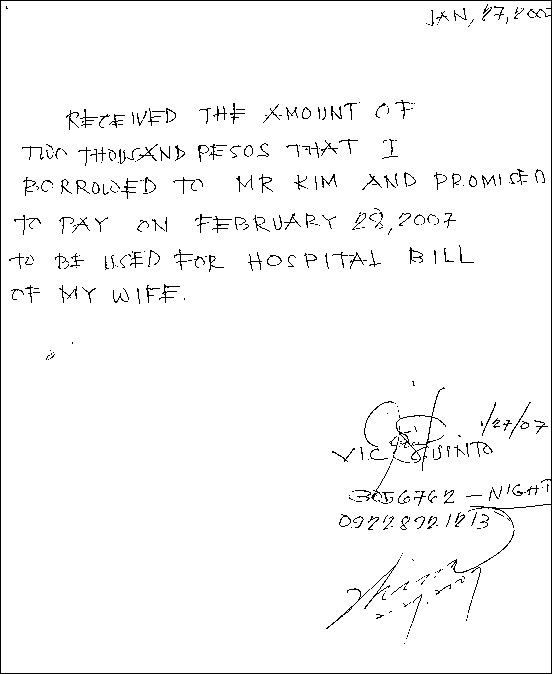 JAN, 27, 200
RECEIVED THE AMOUNT OF
TWO THOUSAND PESOS THAT I
BORROWED TO MR KIM AND PROMISED
TO PAY ON FEBRUARY 28, 2007
TO BE USED FOR HOSPITAL BILL
OF MY WIFE.
1/27/07
VIC
3056762 - NIGHT
0922.892.1213